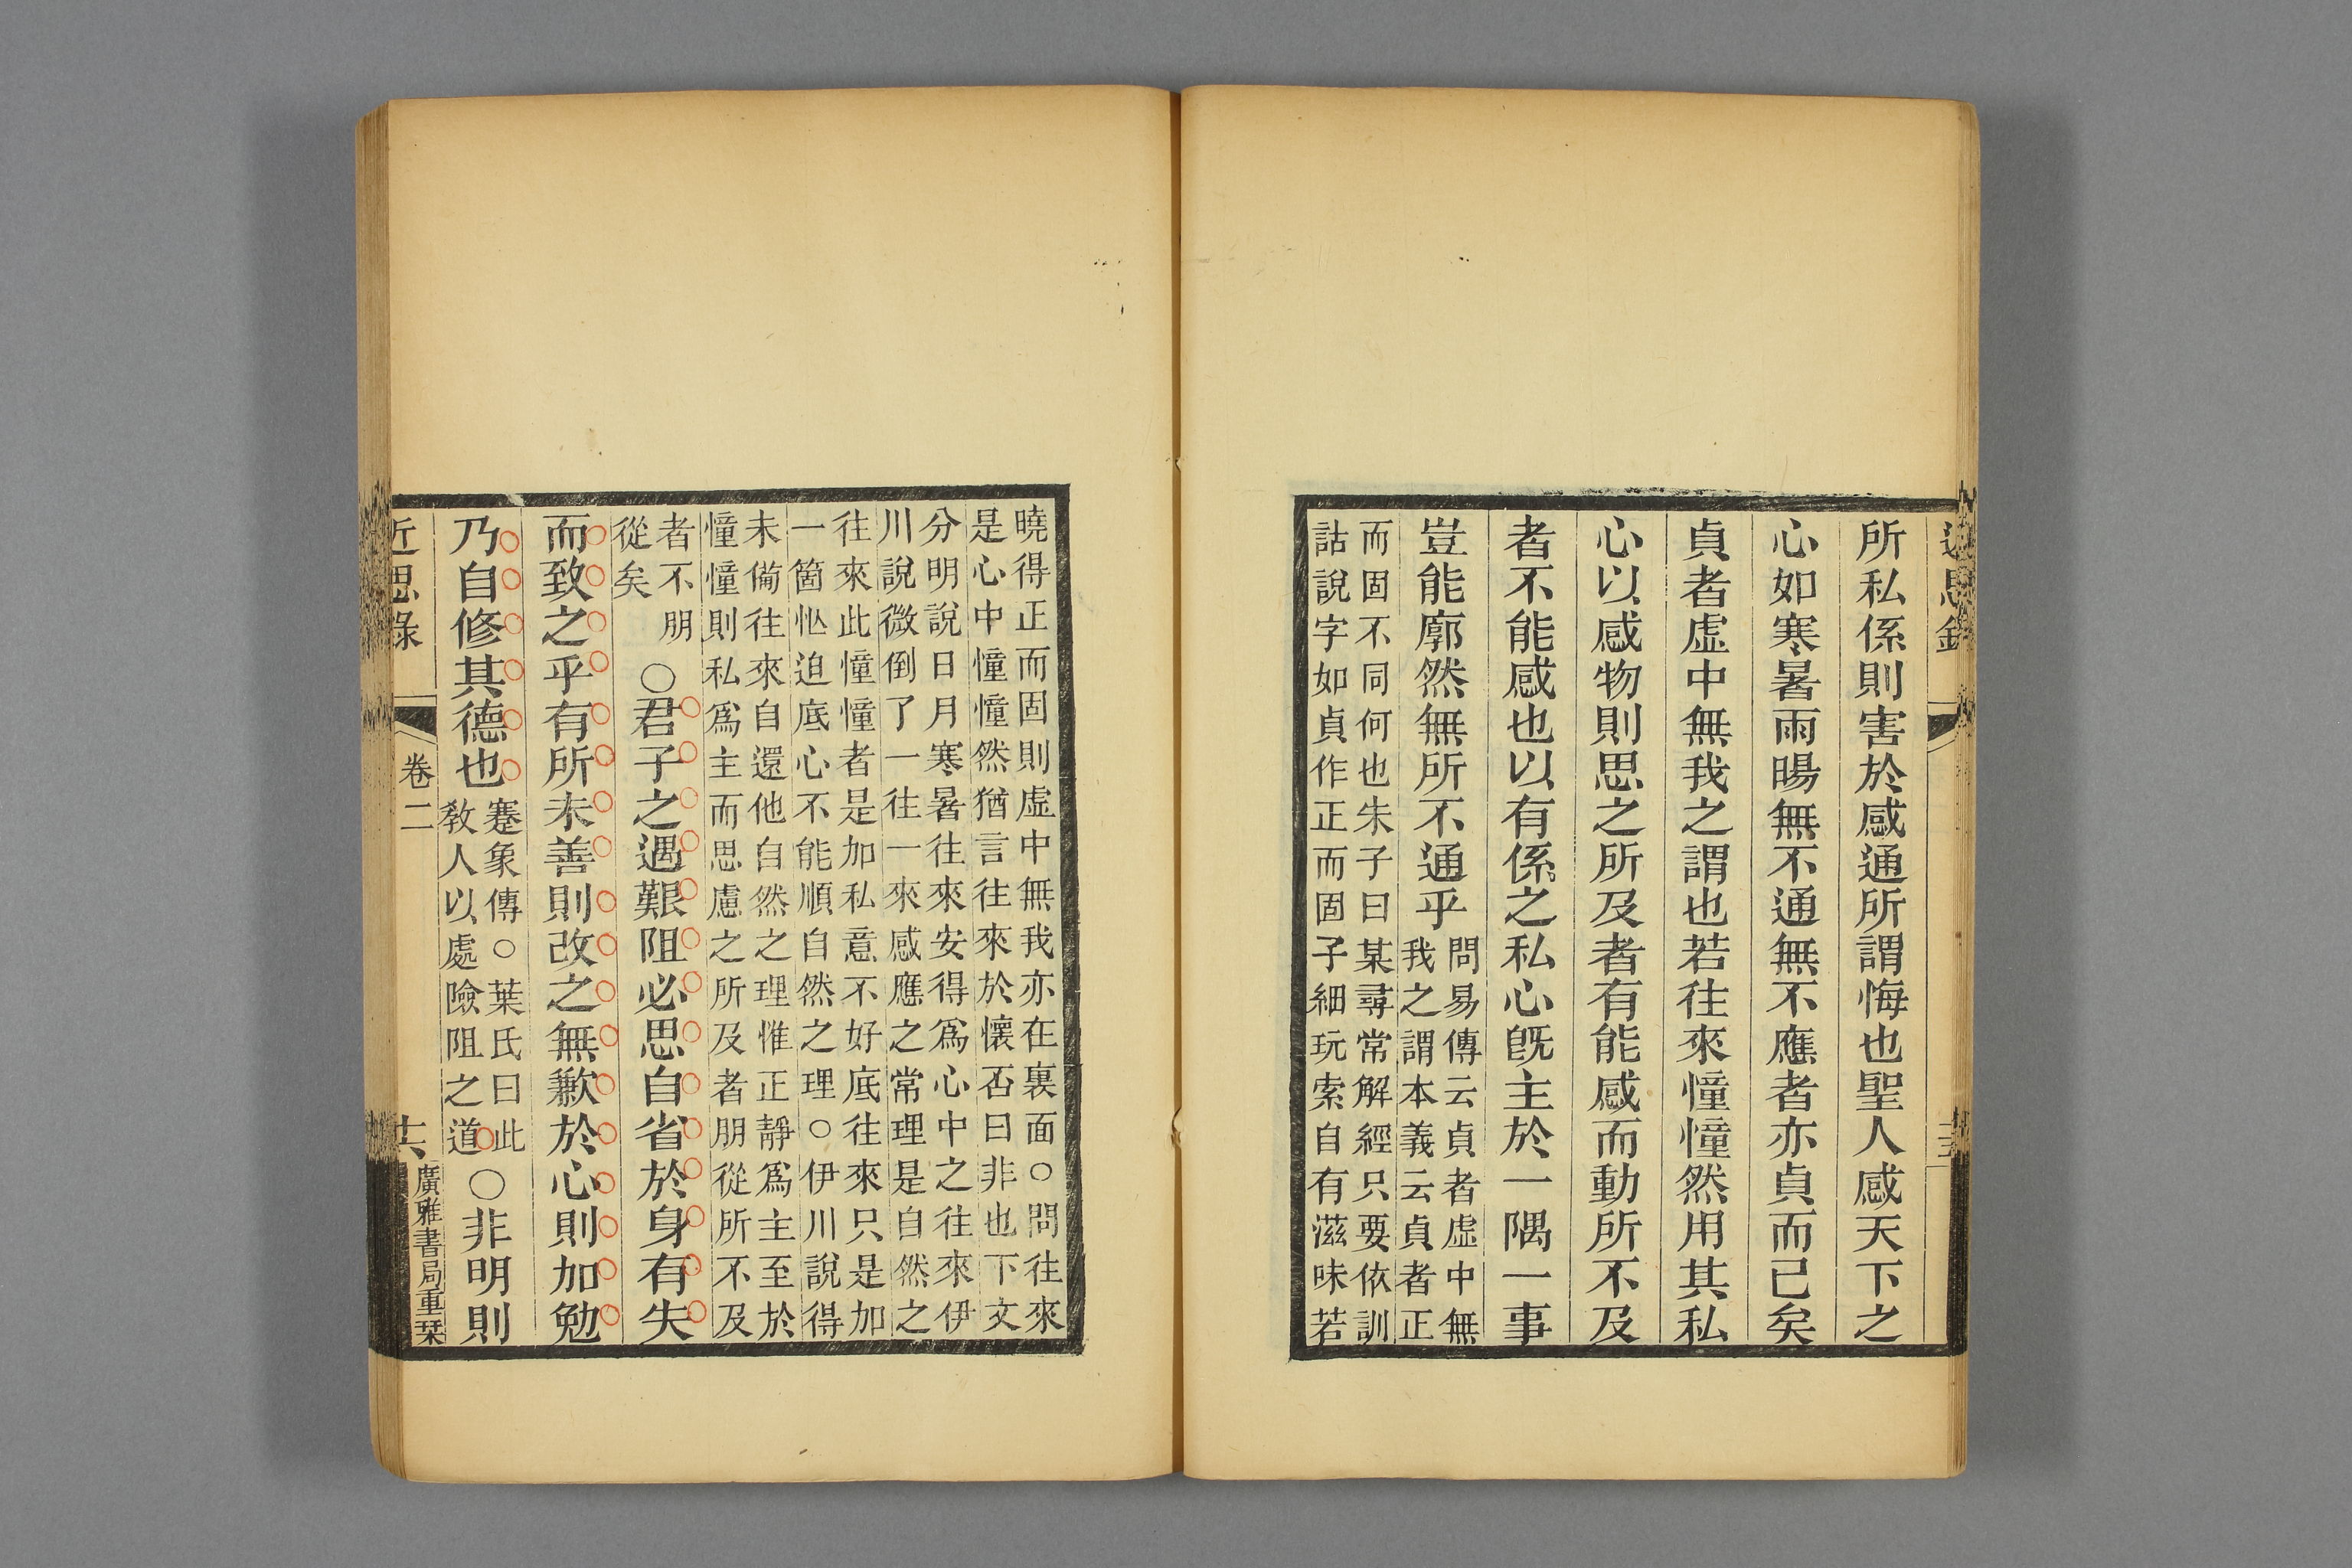 所私係則害於感通所謂悔也聖人感天下之
心如寒暑雨暘無不通無不應者亦貞而已矣
貞者虛中無我之謂也若往來憧憧然用其私
心以感物則思之所及者有能感而動所不及
者不能感也以有係之私心旣主於一隅一事
豈能廓然無所不通乎
問易傳云貞者虛中無
我之謂本義云貞者正
而固不同何也朱子曰某尋常解經只要依訓
詁說字如貞作正而固子細玩索自有滋味若
曉得正而固則虛中無我亦在裏面○問往來
是心中憧憧然猶言往來於懷否曰非也下文
分明說日月寒暑往來安得爲心中之往來伊
川說微倒了一往一來感應之常理是自然之
往來此憧憧者是加私意不好底往來只是加
一箇忙迫底心不能順自然之理○伊川說得
未備往來自還他自然之理惟正靜爲主至於
憧憧則私爲主而思慮之所及者朋從所不及
者不朋
從矣
○君子之遇艱阻必思自省於身有失
而致之乎有所未善則改之無歉於心則加勉
乃自修其德也
蹇象傳○葉氏曰此
敎人以處險阻之道
○非明則
近思錄
卷二
十六
廣雅書局重栞